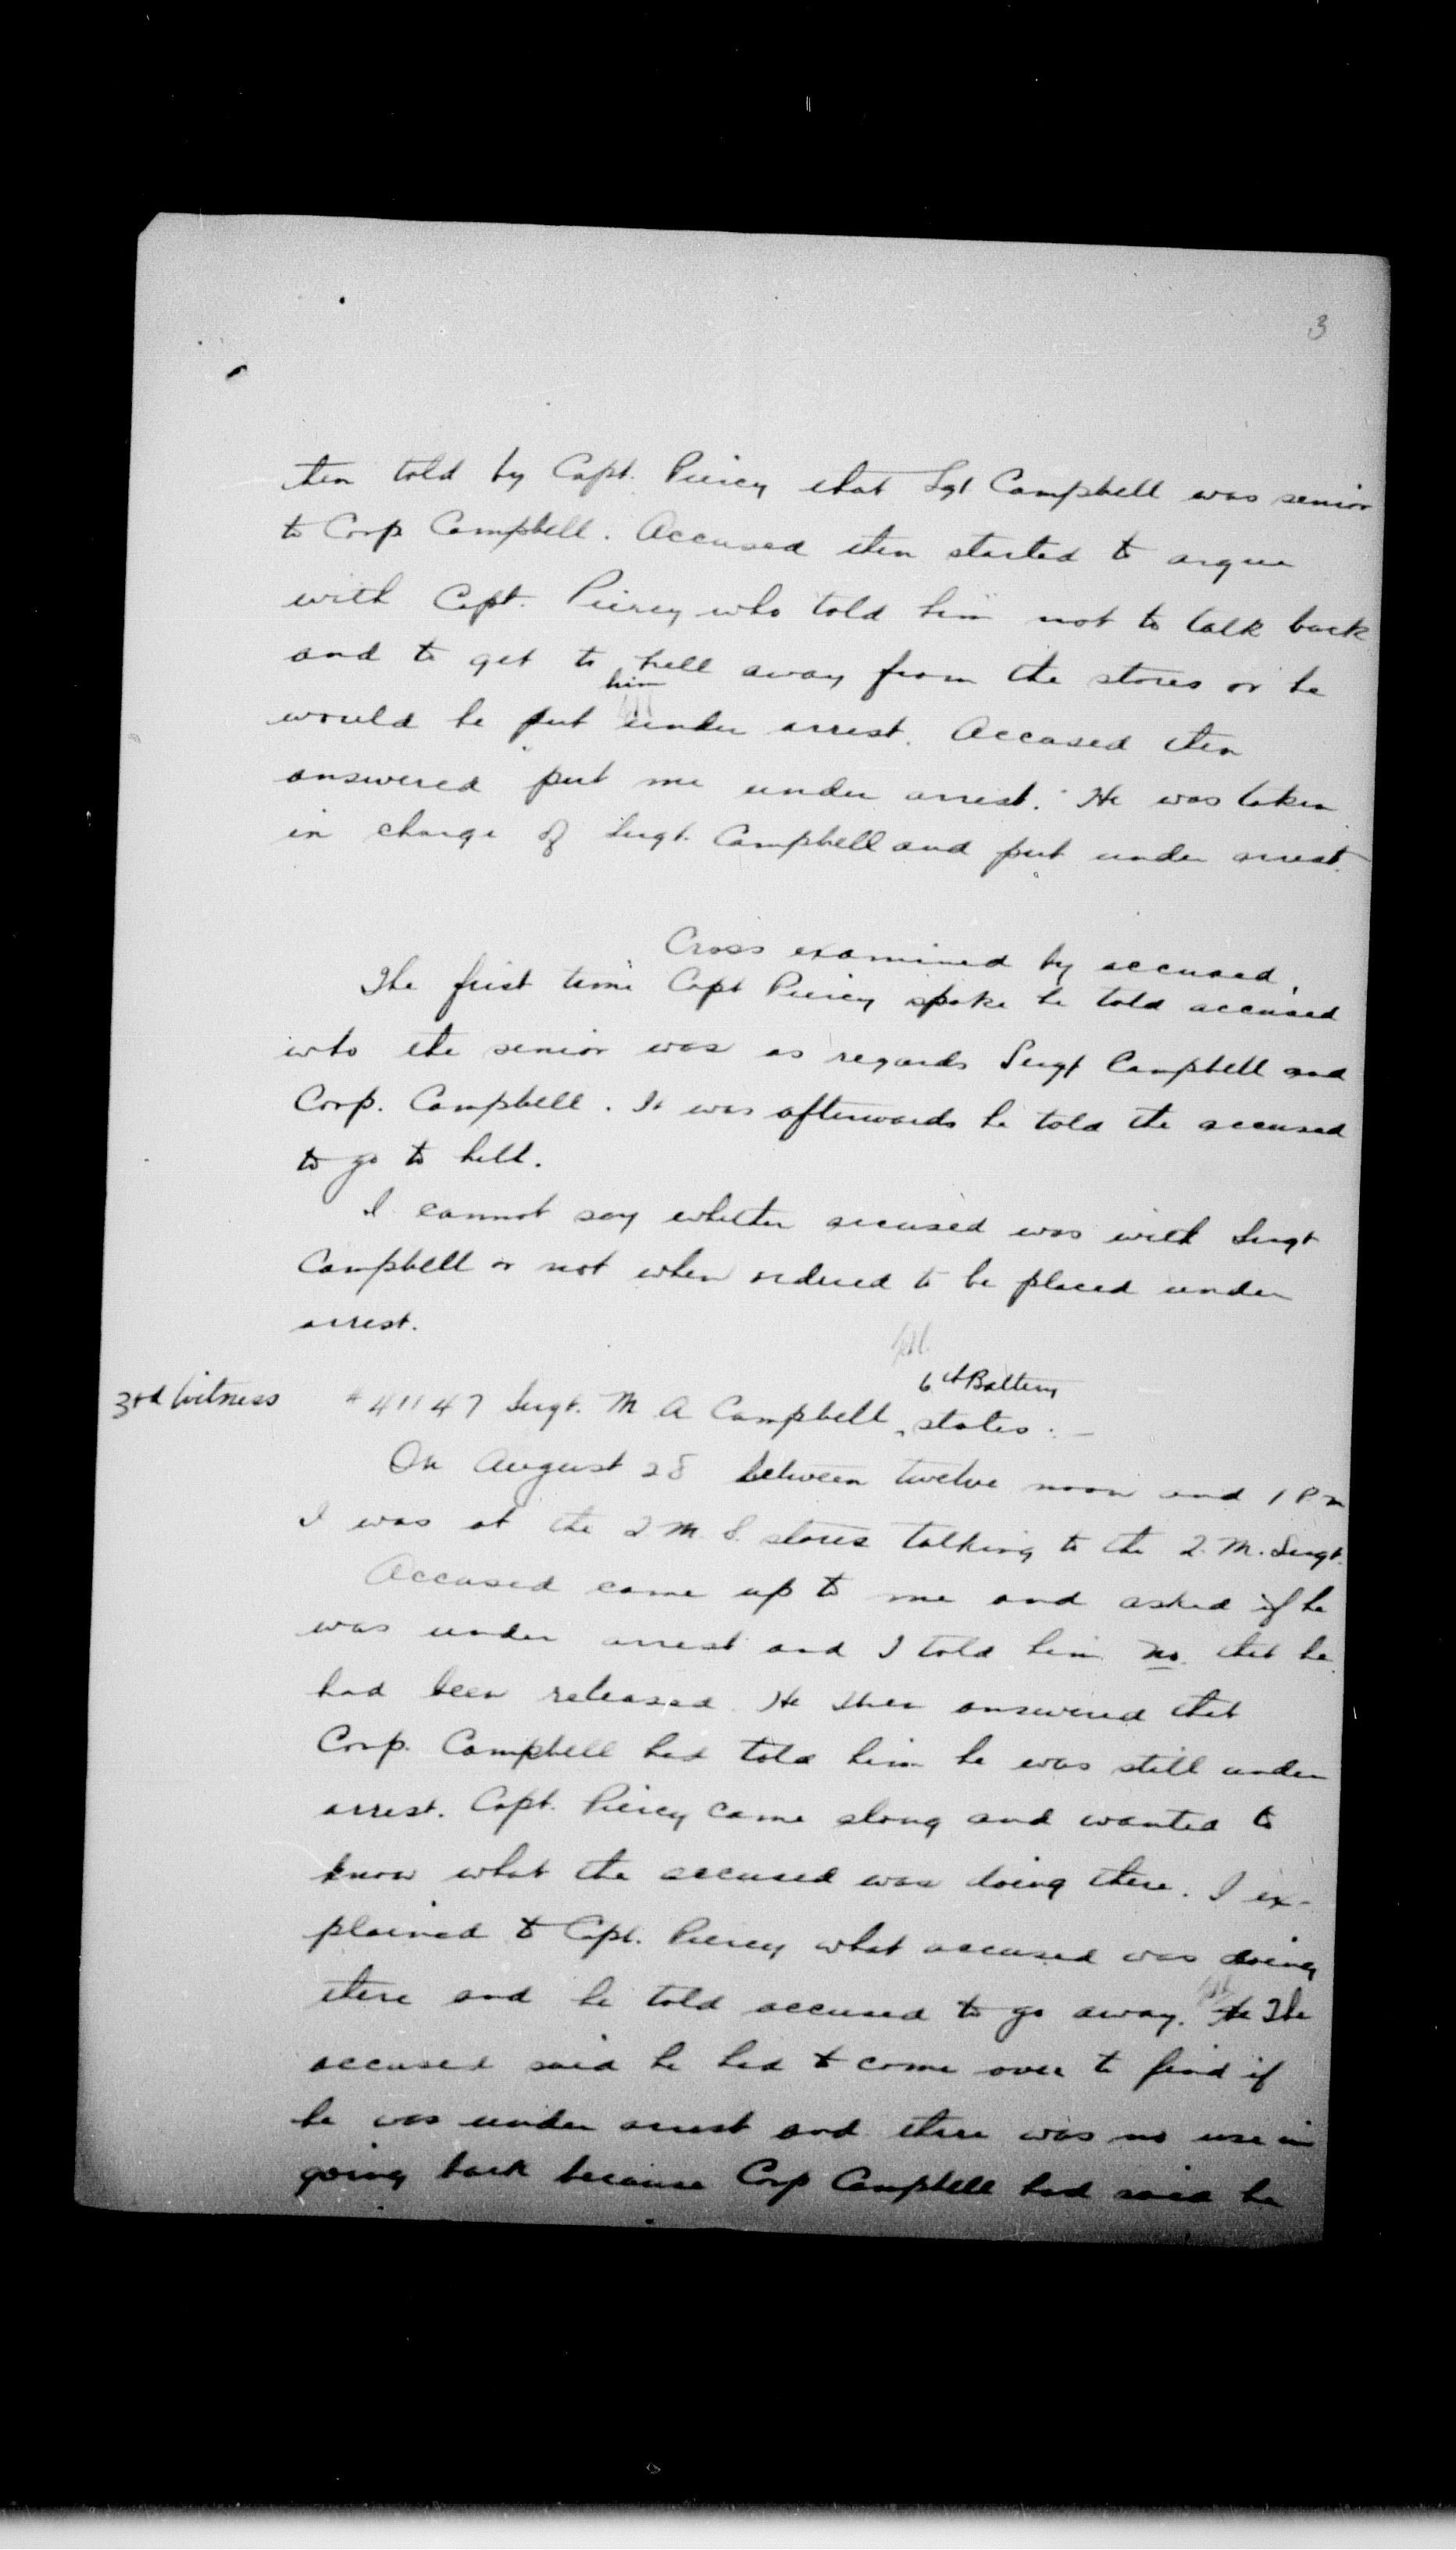 3
then told by Capt. Piercy that Sgt Campbell was senior
to Corp Campbell. Accused then started to argue
with Capt. Piercy who told him not to talk back
and to get to hell away from the stores or he
him
would be put under arrest. Accused then
answered "put me under arrest." He was taken
in charge of Sergt. Campbell and put under arrest.
Cross examined by accused.
The first time Capt Piercy spoke he told accused
who the senior was as regards Sergt Campbell and
Corp. Campbell. It was afterwards he told the accused
to go to hell.
I cannot say whether accused was with Sergt
Campbell or not when ordered to be placed under
arrest.
6th Battery
3rd Witness # 41147 Sergt. M A Campbell, states :-
On August 28 between twelve noon and 1 P.m
I was at the Q M S. stores talking to the Q. M. Sergt.
Accused came up to me and asked if he
was under arrest and I told him no. that he
had been released. He then answered that
Corp. Campbell had told him he was still under
arrest. Capt. Piercy came along and wanted to
know what the accused was doing there. I ex-
plained to Capt. Piercy what accused was doing
there and he told accused to go away. He The
accused said he had to come over to find if
he was under arrest and there was no use in
going back because Corp Campbell had said he